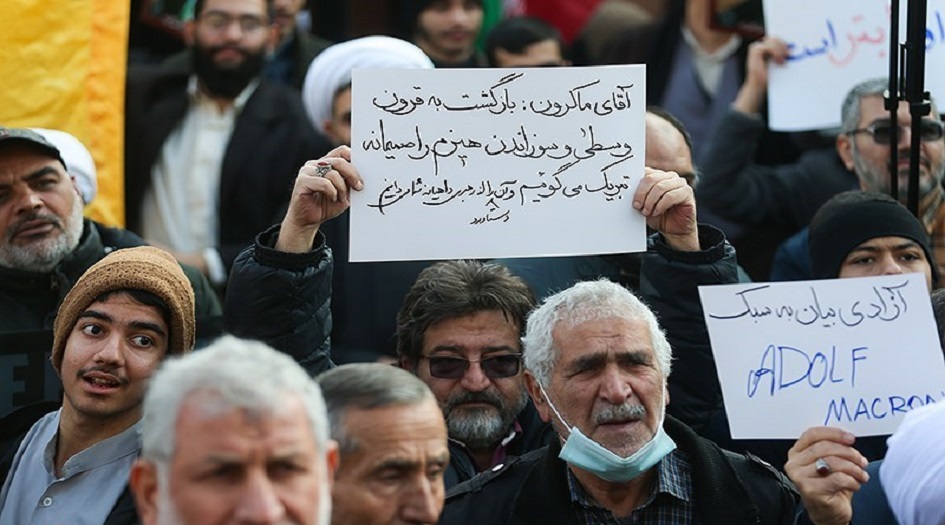 آقای ماکرون: بازگشت به قرون
وسطی و سوزاندن هیزم را صمیمانه
تبریک می گوئیم و آن را از
دستاورد
است
آزادی بیان به سبک
ADOLF
MACRON